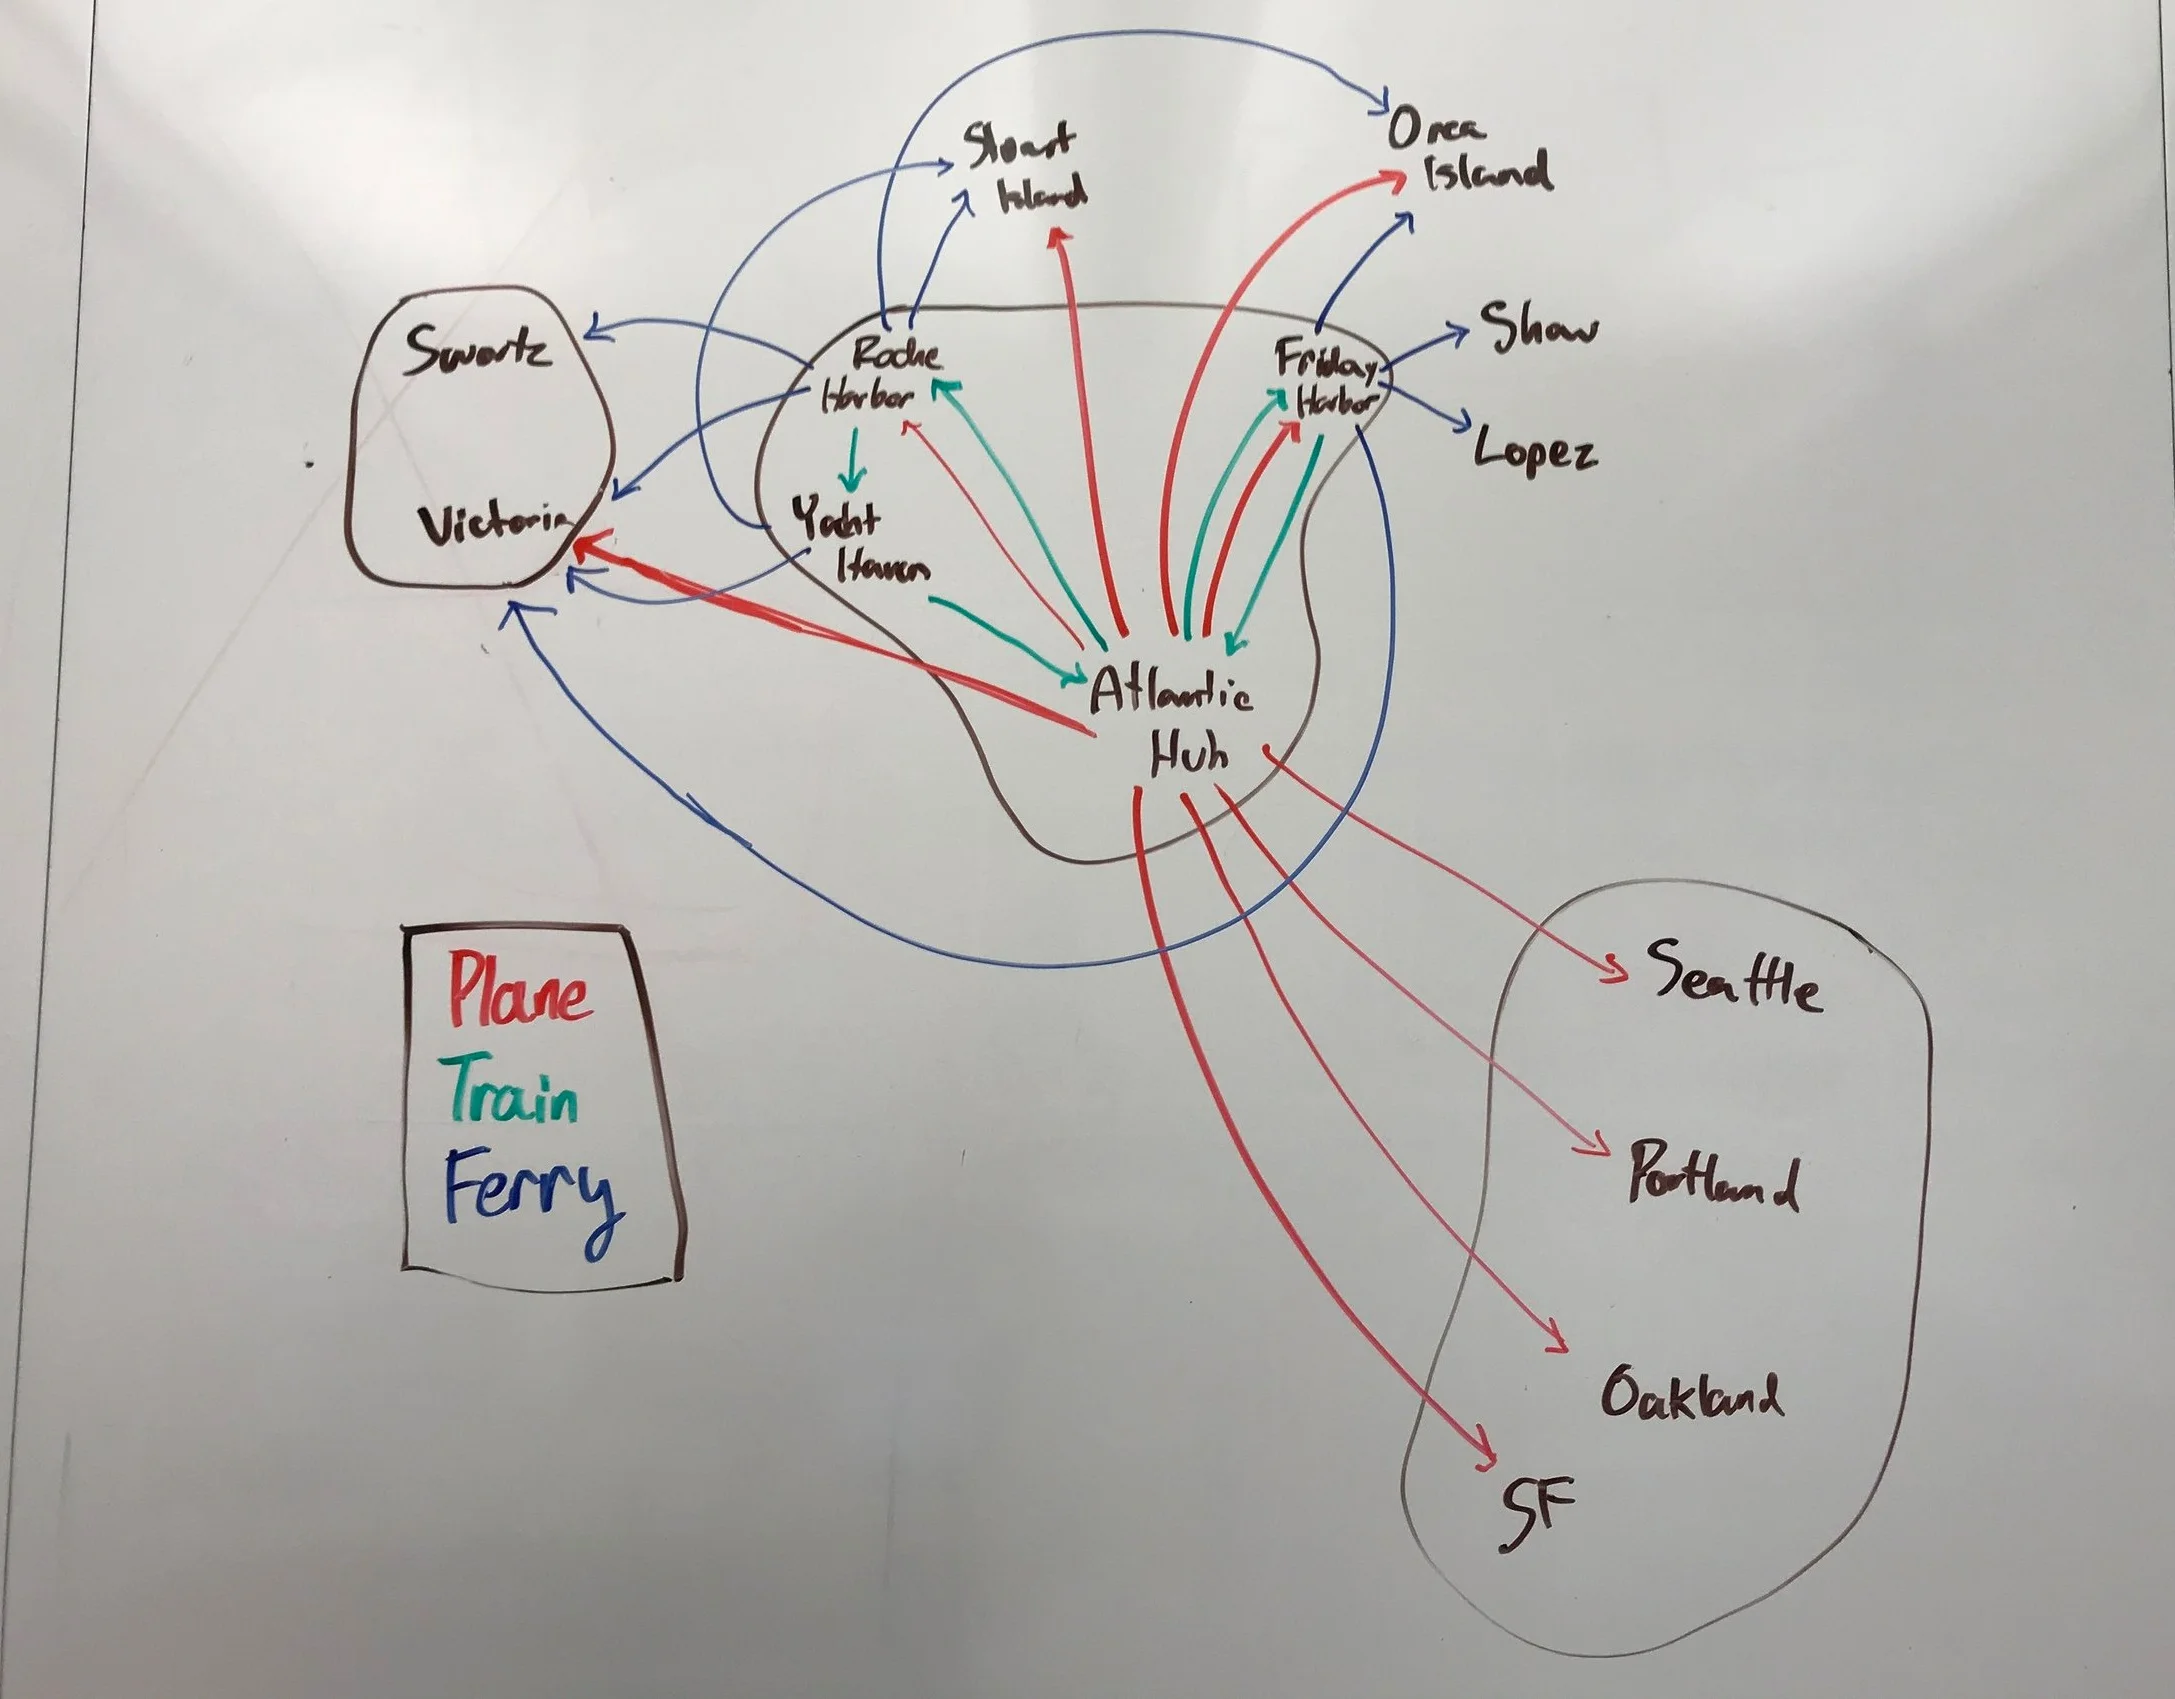 Stuart
Island
Orca
Island
Swartz
Roche
Harbor
Friday
Harbor
Shaw
Lopez
Victoria
Yacht
Haven
Atlantic
Hub
Plane
Train
Ferry
Seattle
Portland
Oakland
SF